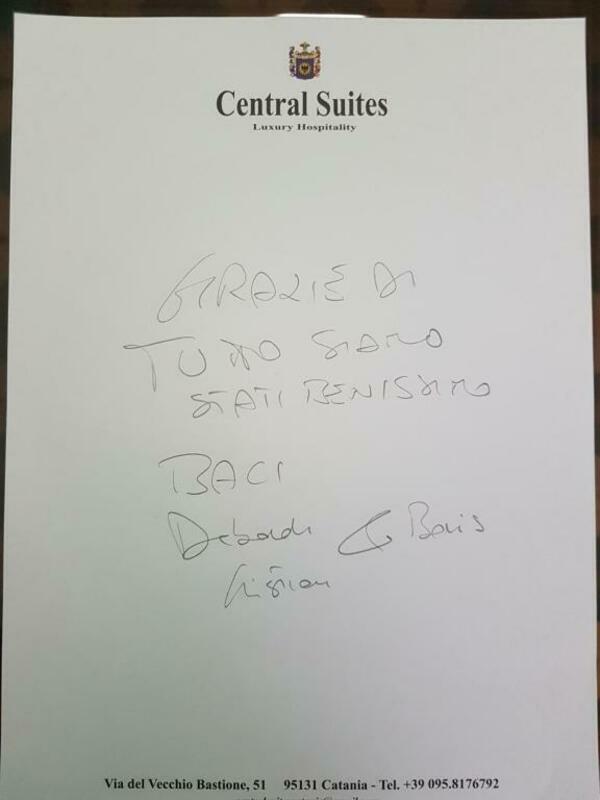 Central Suites
Luxury Hospitality
GRAZIE DI
TUTTO SIAMO
STATI BENISSIMO
BACI
Deborah & Boris
Cristian
Via del Vecchio Bastione, 51 95131 Catania - Tel. +39 095.8176792